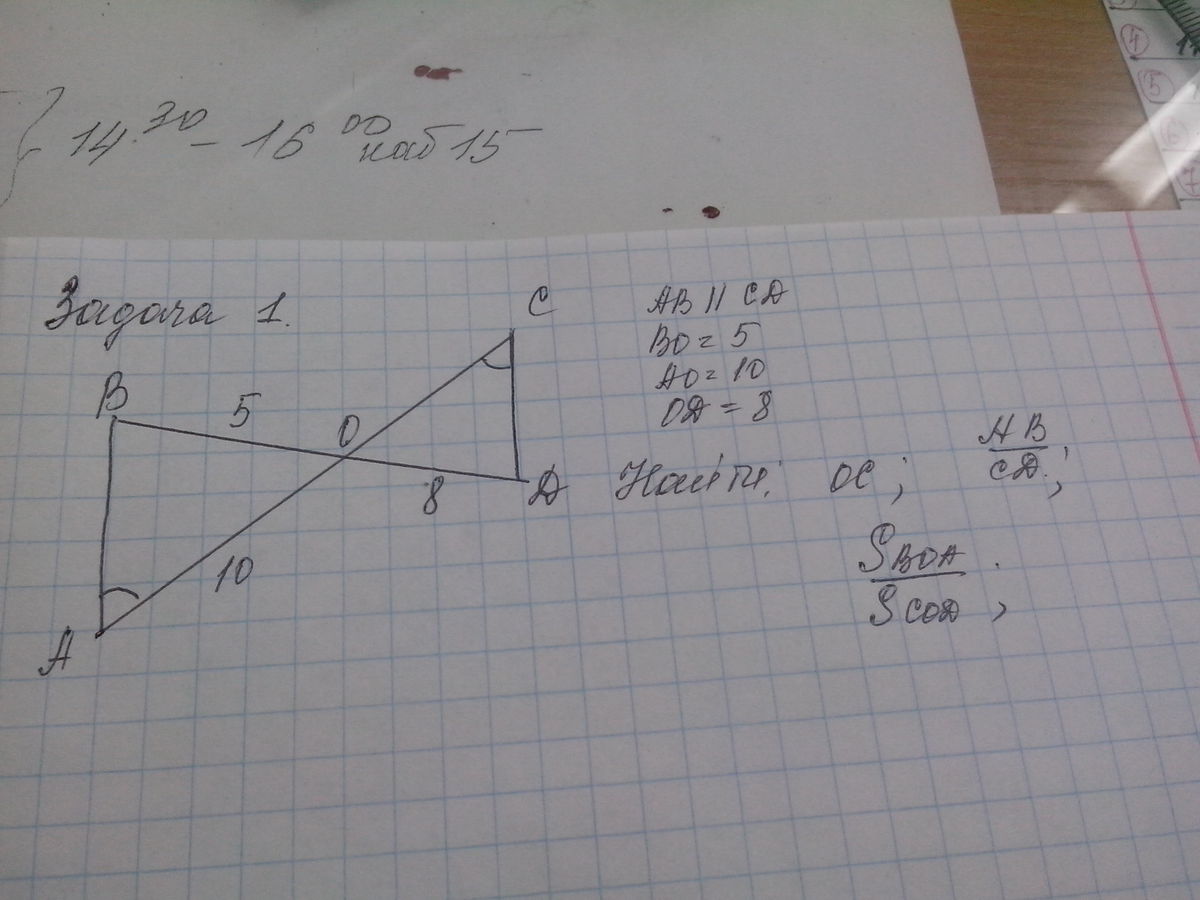 14.30 – 16 00 каб 15
Задача 1.
C
AB || CD
BO = 5
AO = 10
OD = 8
B
5
O
8
D
10
A
Найти: OC; AB/CD;
S BOA / S COD;
4
5
6
7